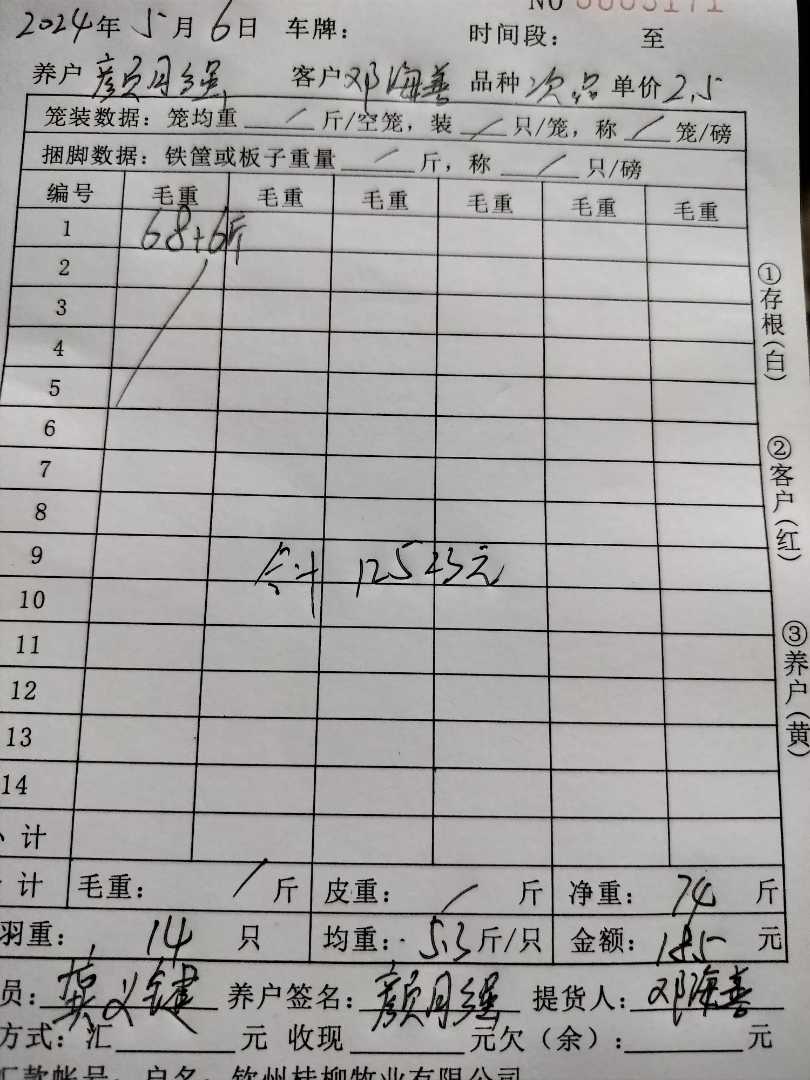 NO 0003171
2024年5月6日 车牌： 时间段： 至
养户 颜月强 客户 邓海善 品种 次品 单价 2.5
笼装数据：笼均重 / 斤/空笼，装 / 只/笼，称 / 笼/磅
捆脚数据：铁筐或板子重量 / 斤，称 / 只/磅
编号 毛重 毛重 毛重 毛重 毛重 毛重
1 68+6斤
2
3
4
5
6
7
8
9 合计 12523元
10
11
12
13
14
小计
计 毛重： / 斤 皮重： / 斤 净重： 74 斤
羽重： 14 只 均重： 5.3 斤/只 金额： 185 元
员： 龚义键 养户签名： 颜月强 提货人： 邓海善
方式：汇 元 收现 元欠（余）： 元
汇款帐号：户名：钦州桂柳牧业有限公司
①存根（白）
②客户（红）
③养户（黄）